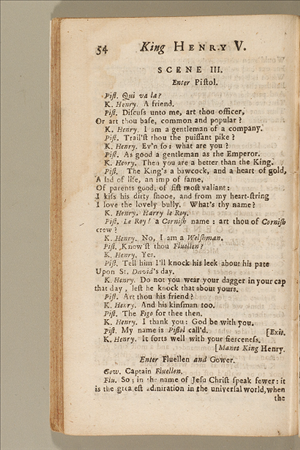 54 King HENRY V.
SCENE III.
Enter Pistol.
Pist. Qui va la?
K. Henry. A friend.
Pist. Discuss unto me, art thou officer,
Or art thou base, common and popular?
K. Henry. I am a gentleman of a company.
Pist. Trail'st thou the puissant pike?
K. Henry. Ev'n so: what are you?
Pist. As good a gentleman as the Emperor.
K. Henry. Then you are a better than the King.
Pist. The King's a bawcock, and a heart of gold,
A lad of life, an imp of fame,
Of parents good, of fist most valiant:
I kiss his dirty shooe, and from my heart-string
I love the lovely bully. What's thy name?
K. Henry. Harry le Roy.
Pist. Le Roy! a Cornish name: art thou of Cornish
crew?
K. Henry. No, I am a Welshman.
Pist. Know'st thou Fluellen?
K. Henry. Yes.
Pist. Tell him I'll knock his leek about his pate
Upon St. David's day.
K. Henry. Do not you wear your dagger in your cap
that day, lest he knock that about yours.
Pist. Art thou his friend?
K. Henry. And his kinsman too.
Pist. The Figo for thee then.
K. Henry. I thank you: God be with you.
Pist. My name is Pistol call'd. [Exit.
K. Henry. It sorts well with your fierceness.
[Manet King Henry.
Enter Fluellen and Gower.
Gow. Captain Fluellen.
Flu. So; in the name of Jesu Christ speak fewer: it
is the greatest admiration in the universal world, when
the